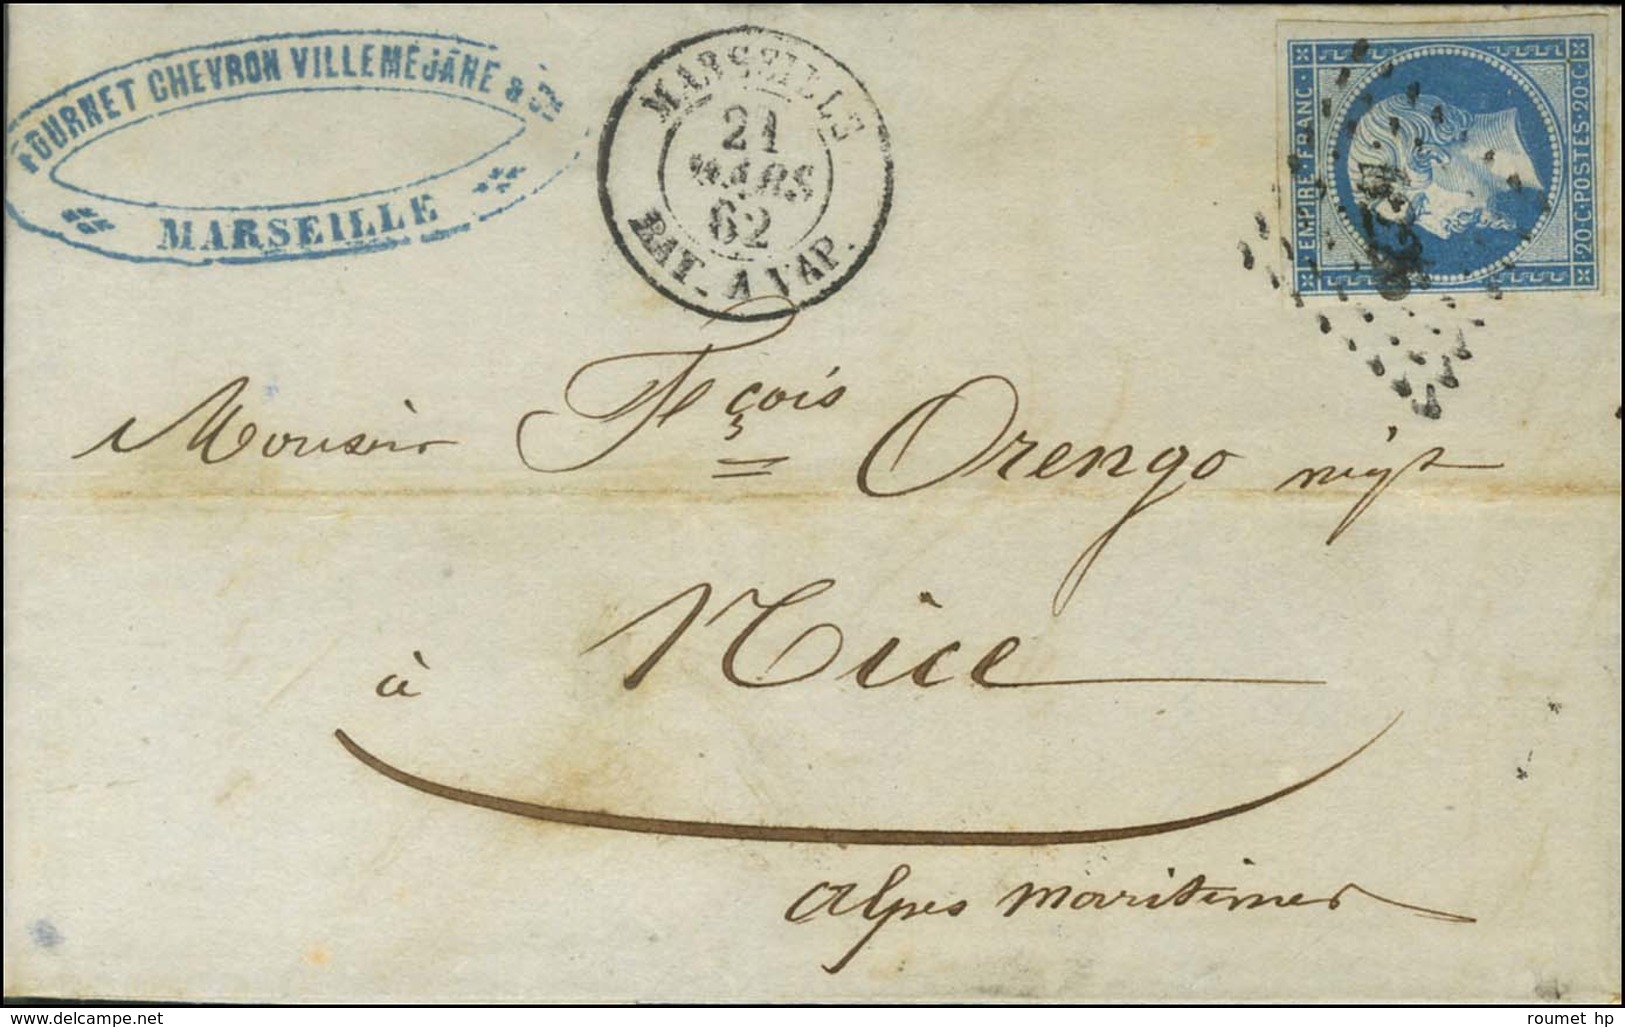 FOURNET CHEVRON VILLEMEJANE & Cie
MARSEILLE
MARSEILLE
21
MARS
62
BAT. A VAP.
EMPIRE·FRANC·
20·C·POSTES·20·C
Monsieur Fçois Orengo négt
à Nice
Alpes Maritimes
www.delcampe.net
roumet hp